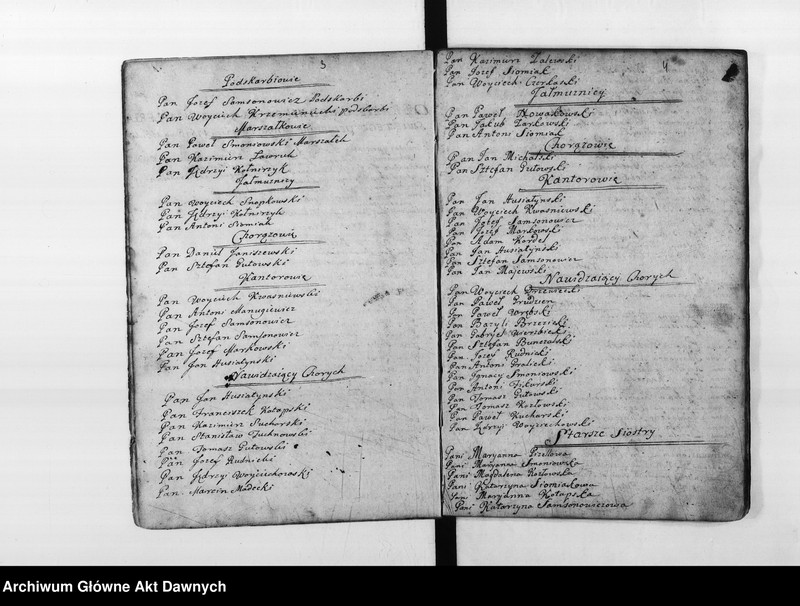 3
Podskarbiowie
Pan Jozef Samsonowicz Podskarbi
Pan Woyciech Krzemieniecki podskarbi
Marszałkowie
Pan Paweł Smoniowski Marszałek
Pan Kazimierz Laworuk
Pan Jędrzyi Kołnirzyk
Jałmuzniczy
Pan Woyciech Snopkowski
Pan Jędrzyi Kołnirzyk
Pan Antoni Siomiak
Chorązowie
Pan Daniel Janiszewski
Pan Sztefan Gutowski
Kantorowie
Pan Woyciech Kwasniewski
Pan Antoni Manugiewicz
Pan Jozef Samsonowicz
Pan Sztefan Samsonowicz
Pan Jozef Markowski
Pan Jan Husiatynski
Nawidzaiący Chorych
Pan Jan Husiatynski
Pan Franciszek Kotapski
Pan Kazimierz Suchorski
Pan Stanisław Juchnowski
Pan Tomasz Gutowski
Pan Jozef Rudnicki
Pan Jędrzi Woyciechowski
Pan Marcin Madecki
4
Pan Kazimierz Zalewski
Pan Jozef Siomiak
Pan Woyciech Czerkaski
Jałmuznicy
Pan Paweł Nowakowski
Pan Jakub Zarkowski
Pan Antoni Siomiak
Chorązowie
Pan Jan Michalski
Pan Sztefan Gutowski
Kantorowie
Pan Jan Husiatynski
Pan Woyciech Kwasniewski
Pan Jozef Samsonowicz
Pan Jozef Markowski
Pan Adam Kordel
Pan Jan Husiatynski
Pan Sztefan Samsonowicz
Pan Jan Majewski
Nawidzaiący Chorych
Pan Woyciech
Pan Paweł Grudzien
Pan Paweł Wrobski
Pan Bazyli Brzezicki
Pan Gabryel Wierzbicki
Pan Sztefan
Pan Jozef Rudnicki
Pan Antoni Gralicki
Pan Ignacy Smoniowski
Pan Antoni
Pan Tomasz Gutowski
Pan Tomasz Kozłowski
Pan Paweł Kucharski
Pan Jędrzyi Woyciechowski
Starsze Siostry
Pani Maryanna
Pani Maryanna Smoniowska
Pani Magdalena Kozłowska
Pani Katarzyna Siomiakowa
Pani Maryanna Kotapska
Pani Katarzyna Samsonowiczowa
Archiwum Główne Akt Dawnych